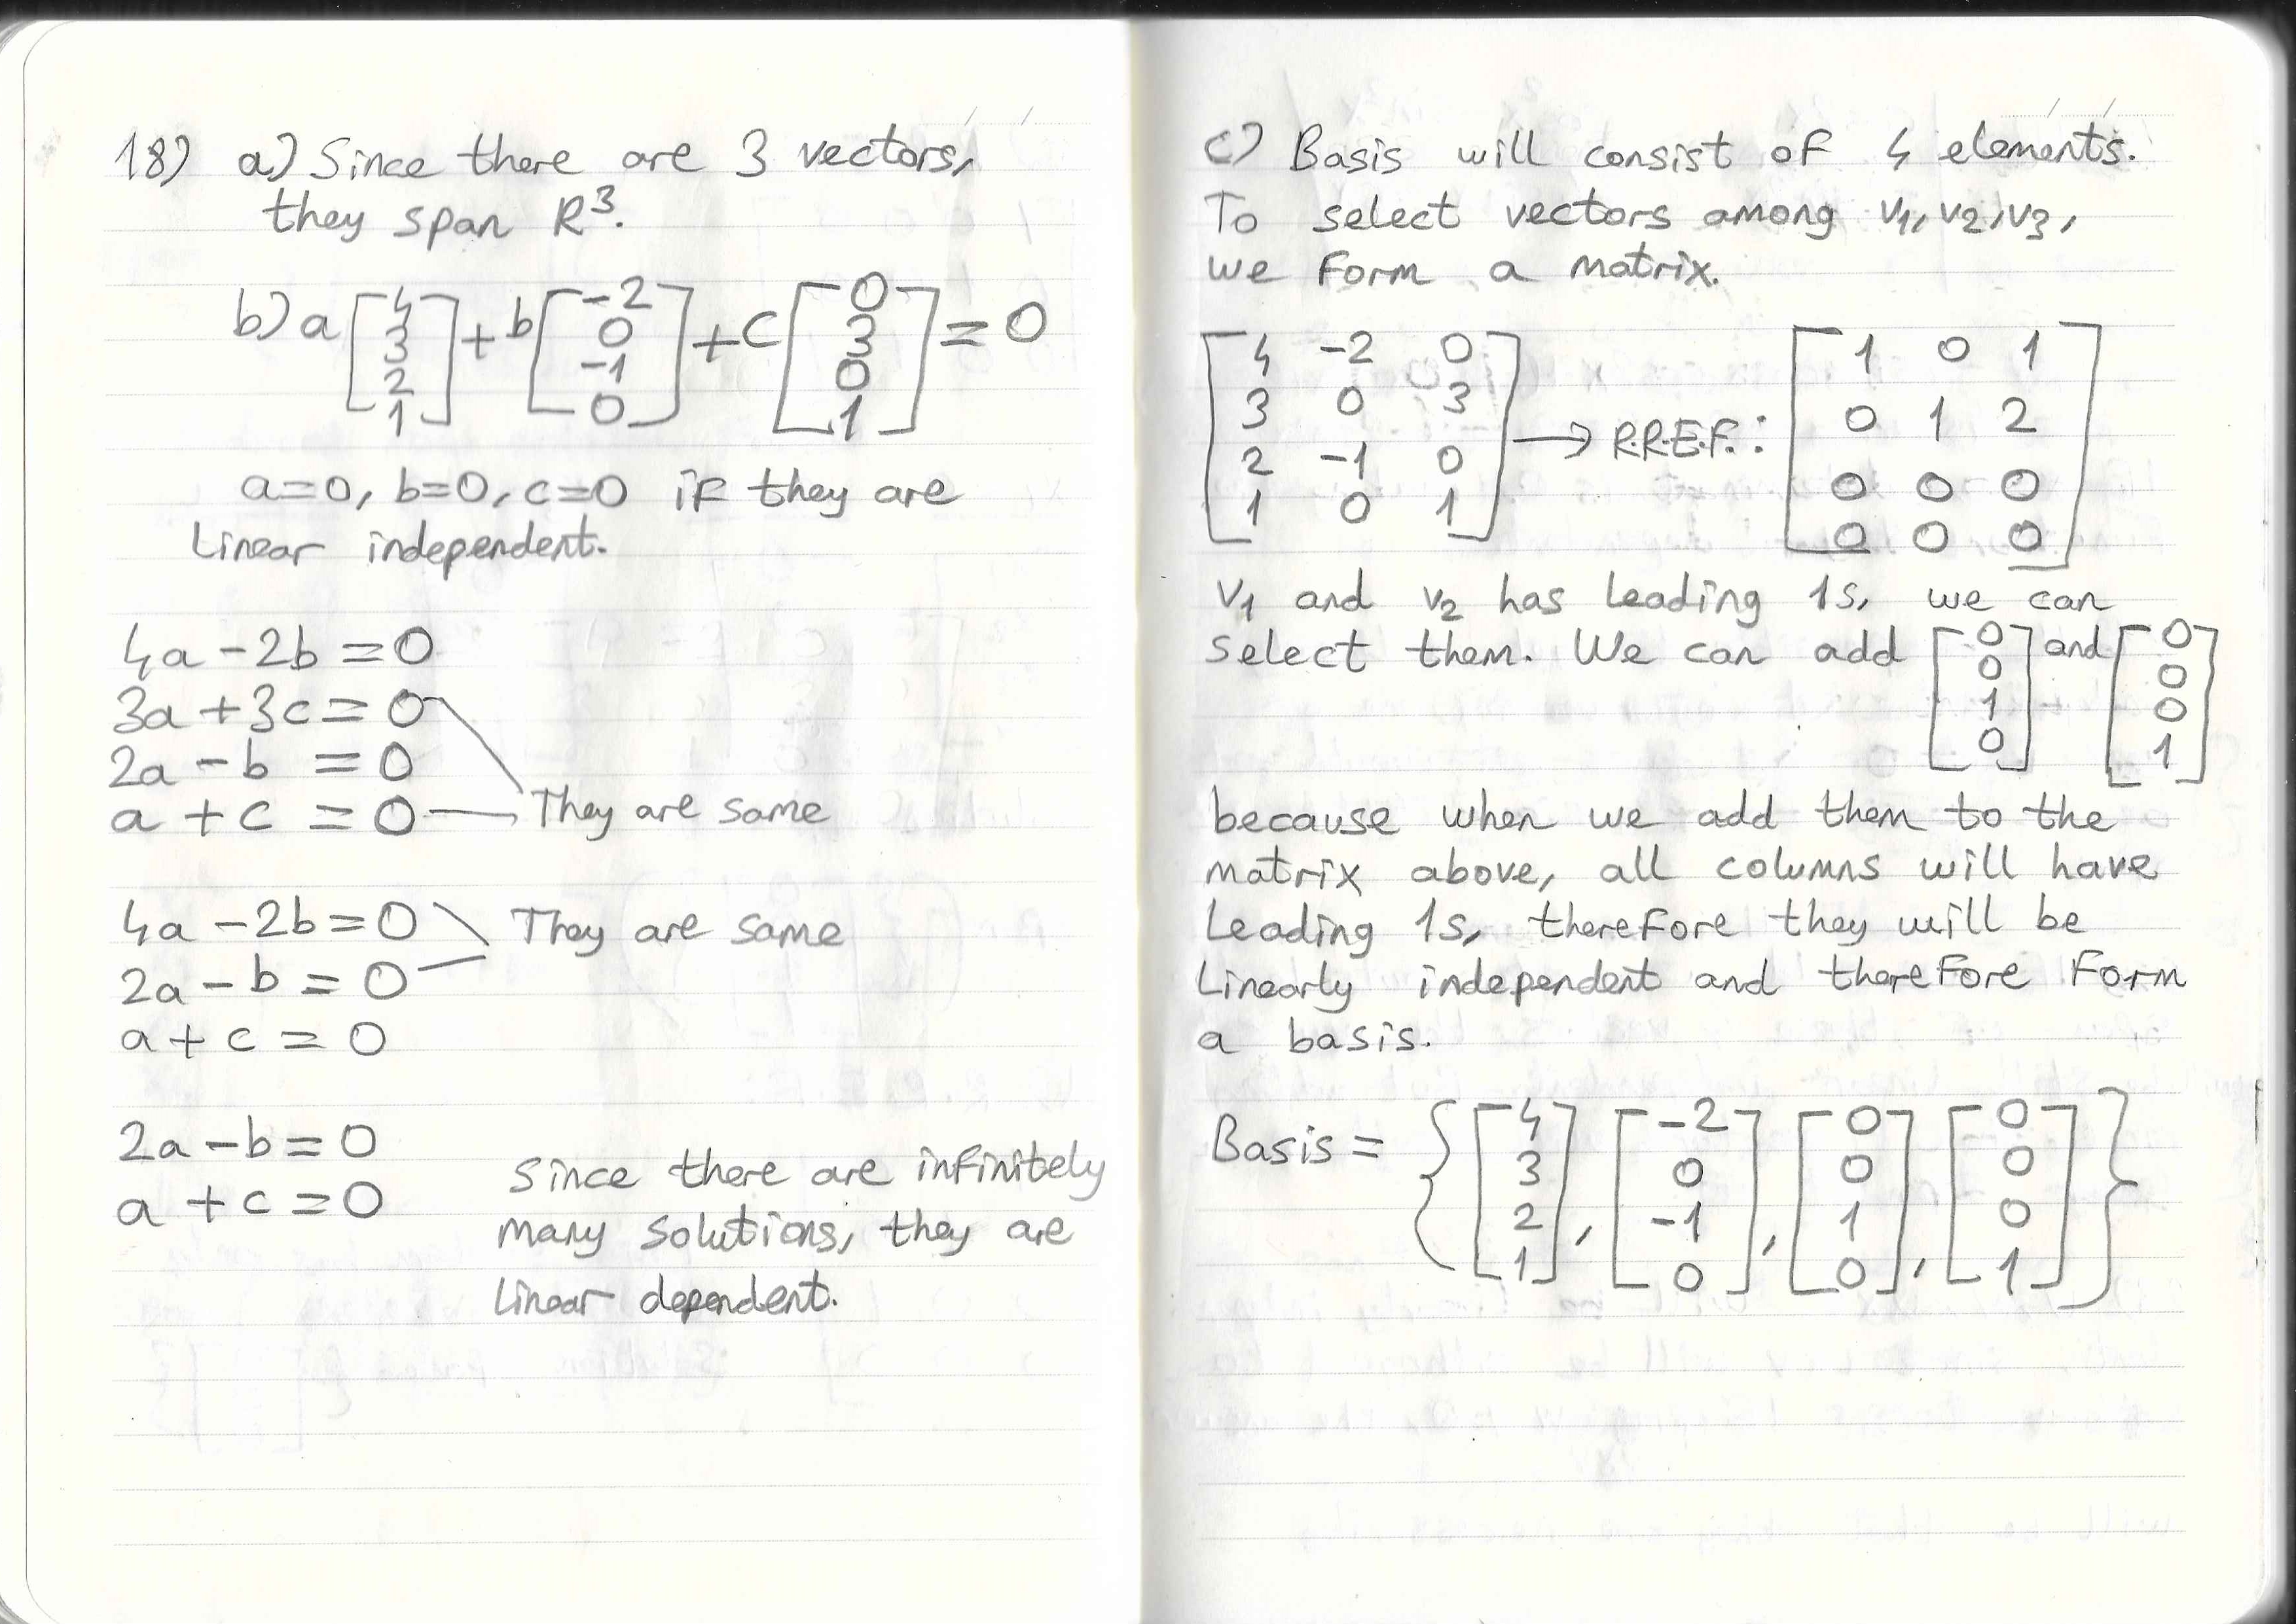 18) a) Since there are 3 vectors,
they span R³.
b) a[4 3 2 1] + b[-2 0 -1 0] + c[0 3 0 1] = 0
a=0, b=0, c=0 if they are
linear independent.
4a - 2b = 0
3a + 3c = 0
2a - b = 0
a + c = 0 They are same
4a - 2b = 0 They are same
2a - b = 0
a + c = 0
2a - b = 0
a + c = 0
Since there are infinitely
many solutions, they are
linear dependent.
c) Basis will consist of 4 elements.
To select vectors among v1, v2, v3,
we form a matrix.
[4 -2 0
3 0 3
2 -1 0
1 0 1] → R.R.E.F.: [1 0 1
0 1 2
0 0 0
0 0 0]
v1 and v2 has leading 1s, we can
select them. We can add [0 0 1 0] and [0 0 0 1]
because when we add them to the
matrix above, all columns will have
leading 1s, therefore they will be
linearly independent and therefore form
a basis.
Basis = {[4 3 2 1], [-2 0 -1 0], [0 0 1 0], [0 0 0 1]}